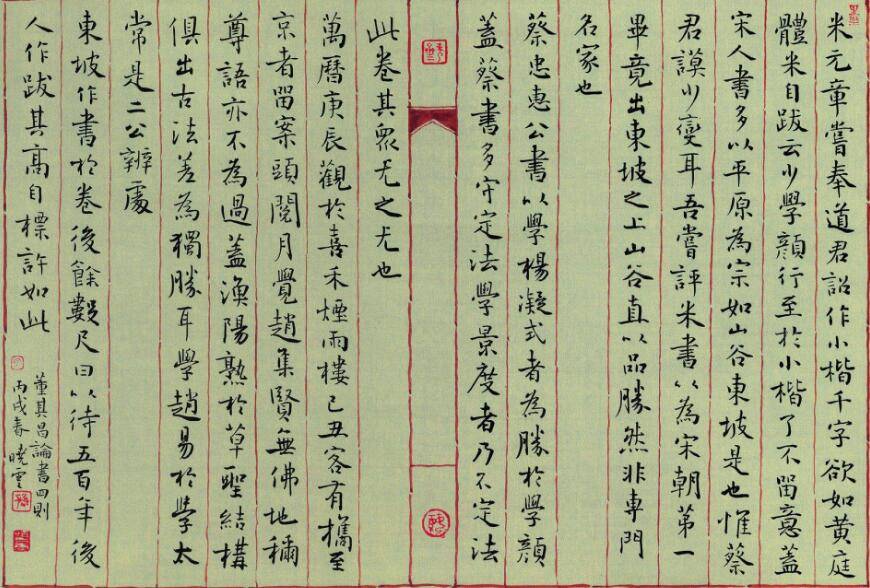 米元章嘗奉道君詔作小楷千字欲如黄庭
體米自跋云少學顔行至於小楷了不留意蓋
宋人書多以平原為宗如山谷東坡是也惟蔡
君謨少變耳吾嘗評米書以為宋朝第一
畢竟出東坡之上山谷直以品勝然非專門
名家也
蔡忠惠公書以學楊凝式者為勝於學顔
蓋蔡書多守定法學景度者乃不定法
此卷其眾尤之尤也
萬曆庚辰觀於喜禾煙雨樓己丑客有攜至
京者留案頭閱月覺趙集賢無佛地稱
尊語亦不為過蓋漁陽熟於草聖結構
俱出古法差為獨勝耳學趙易於學太
常是二公辨處
東坡作書於卷後餘數尺曰以待五百年後
人作跋其高自標許如此
董其昌論書四則
丙戌春 曉雲